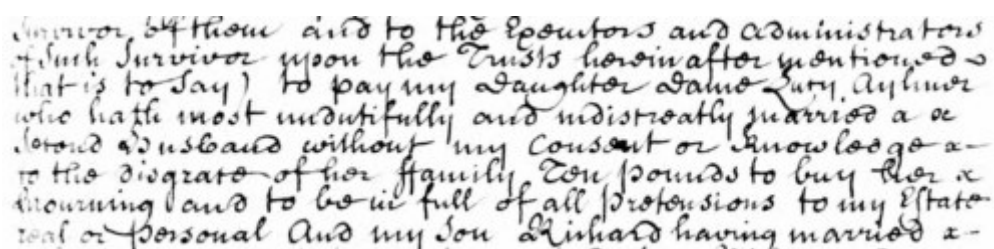 Survivor of them and to the Executors and Administrators
of such Survivor upon the Trusts herein after mentioned
that is to Say) to pay my daughter dame Lucy Aylmer
who hath most undutifully and indiscreatly married a
Second Husband without my Consent or Knowledge
to the disgrace of her ffamily Ten pounds to buy her
Mourning and to be in full of all Pretensions to my Estate
real or Personal And my Son Richard having married a